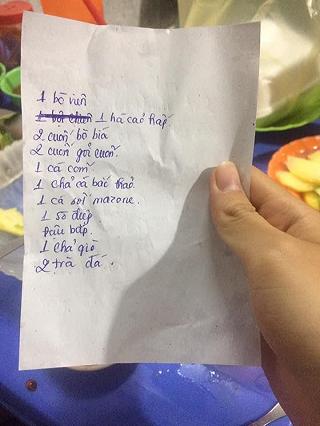 1 bò viên
1 bột chiên 1 há cảo hấp
2 cuốn bò bía
2 cuốn gỏi cuốn.
1 cá cốm
1 chả cá bắc thảo
1 cá sốt mazone.
1 sò điệp
phô bắp.
1 chả giò
2 trà đá.